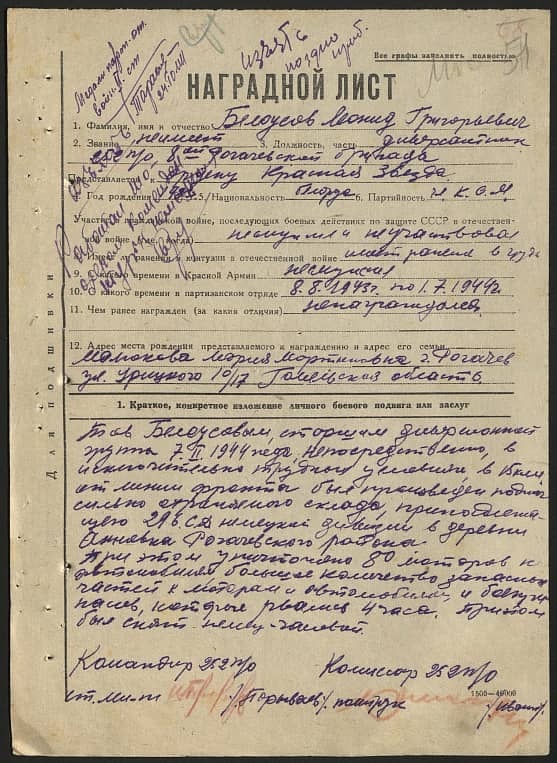 изъять
поздно
Все графы заполнять полностью
НАГРАДНОЙ ЛИСТ
1. Фамилия, имя и отчество Белоусов Леонид Григорьевич
2. Звание 3. Должность, часть диверсантник
252 п/о 8ой Рогачевской бригады
Представляется Красная Звезда
Год рождения 5/Национальность 6. Партийность
Участие в гражданской войне, последующих боевых действиях по защите СССР и отечествен-
ной войне (где, когда) не участвовал
Имеет ли ранения и контузии в отечественной войне имеет ранение в грудь
9. С какого времени в Красной Армии не служил
10. С какого времени в партизанском отряде 8.8.1943г. по 1.7.1944г
11. Чем ранее награжден (за какие отличия) ненаграждался
12. Адрес места рождения представляемого к награждению и адрес его семьи
Мария Мартиновна г. Рогачев
ул. Урицкого 10/17 Гомельская область.
Для подшивки
1. Краткое, конкретное изложение личного боевого подвига или заслуг
Тов Белоусовым, старшим диверсионной
группы 7. II 1944 года непосредственно, в
исключительно трудных условиях в
от линии фронта был произведен
сильно охраняемого склада, принадлежа-
щего 296 С.Д. немецкой дивизии в деревни
Анновка Рогачевского района
При этом уничтожено 80 моторов к
автомобилям большое количество запасных
частей к моторам и автомобилям и боепри-
пасов, которые рвались 4 часа. При этом
был снят немец-часовой.
Командир 252 п/о Комиссар 252 п/о
ст. л-т политрук
1500—46000